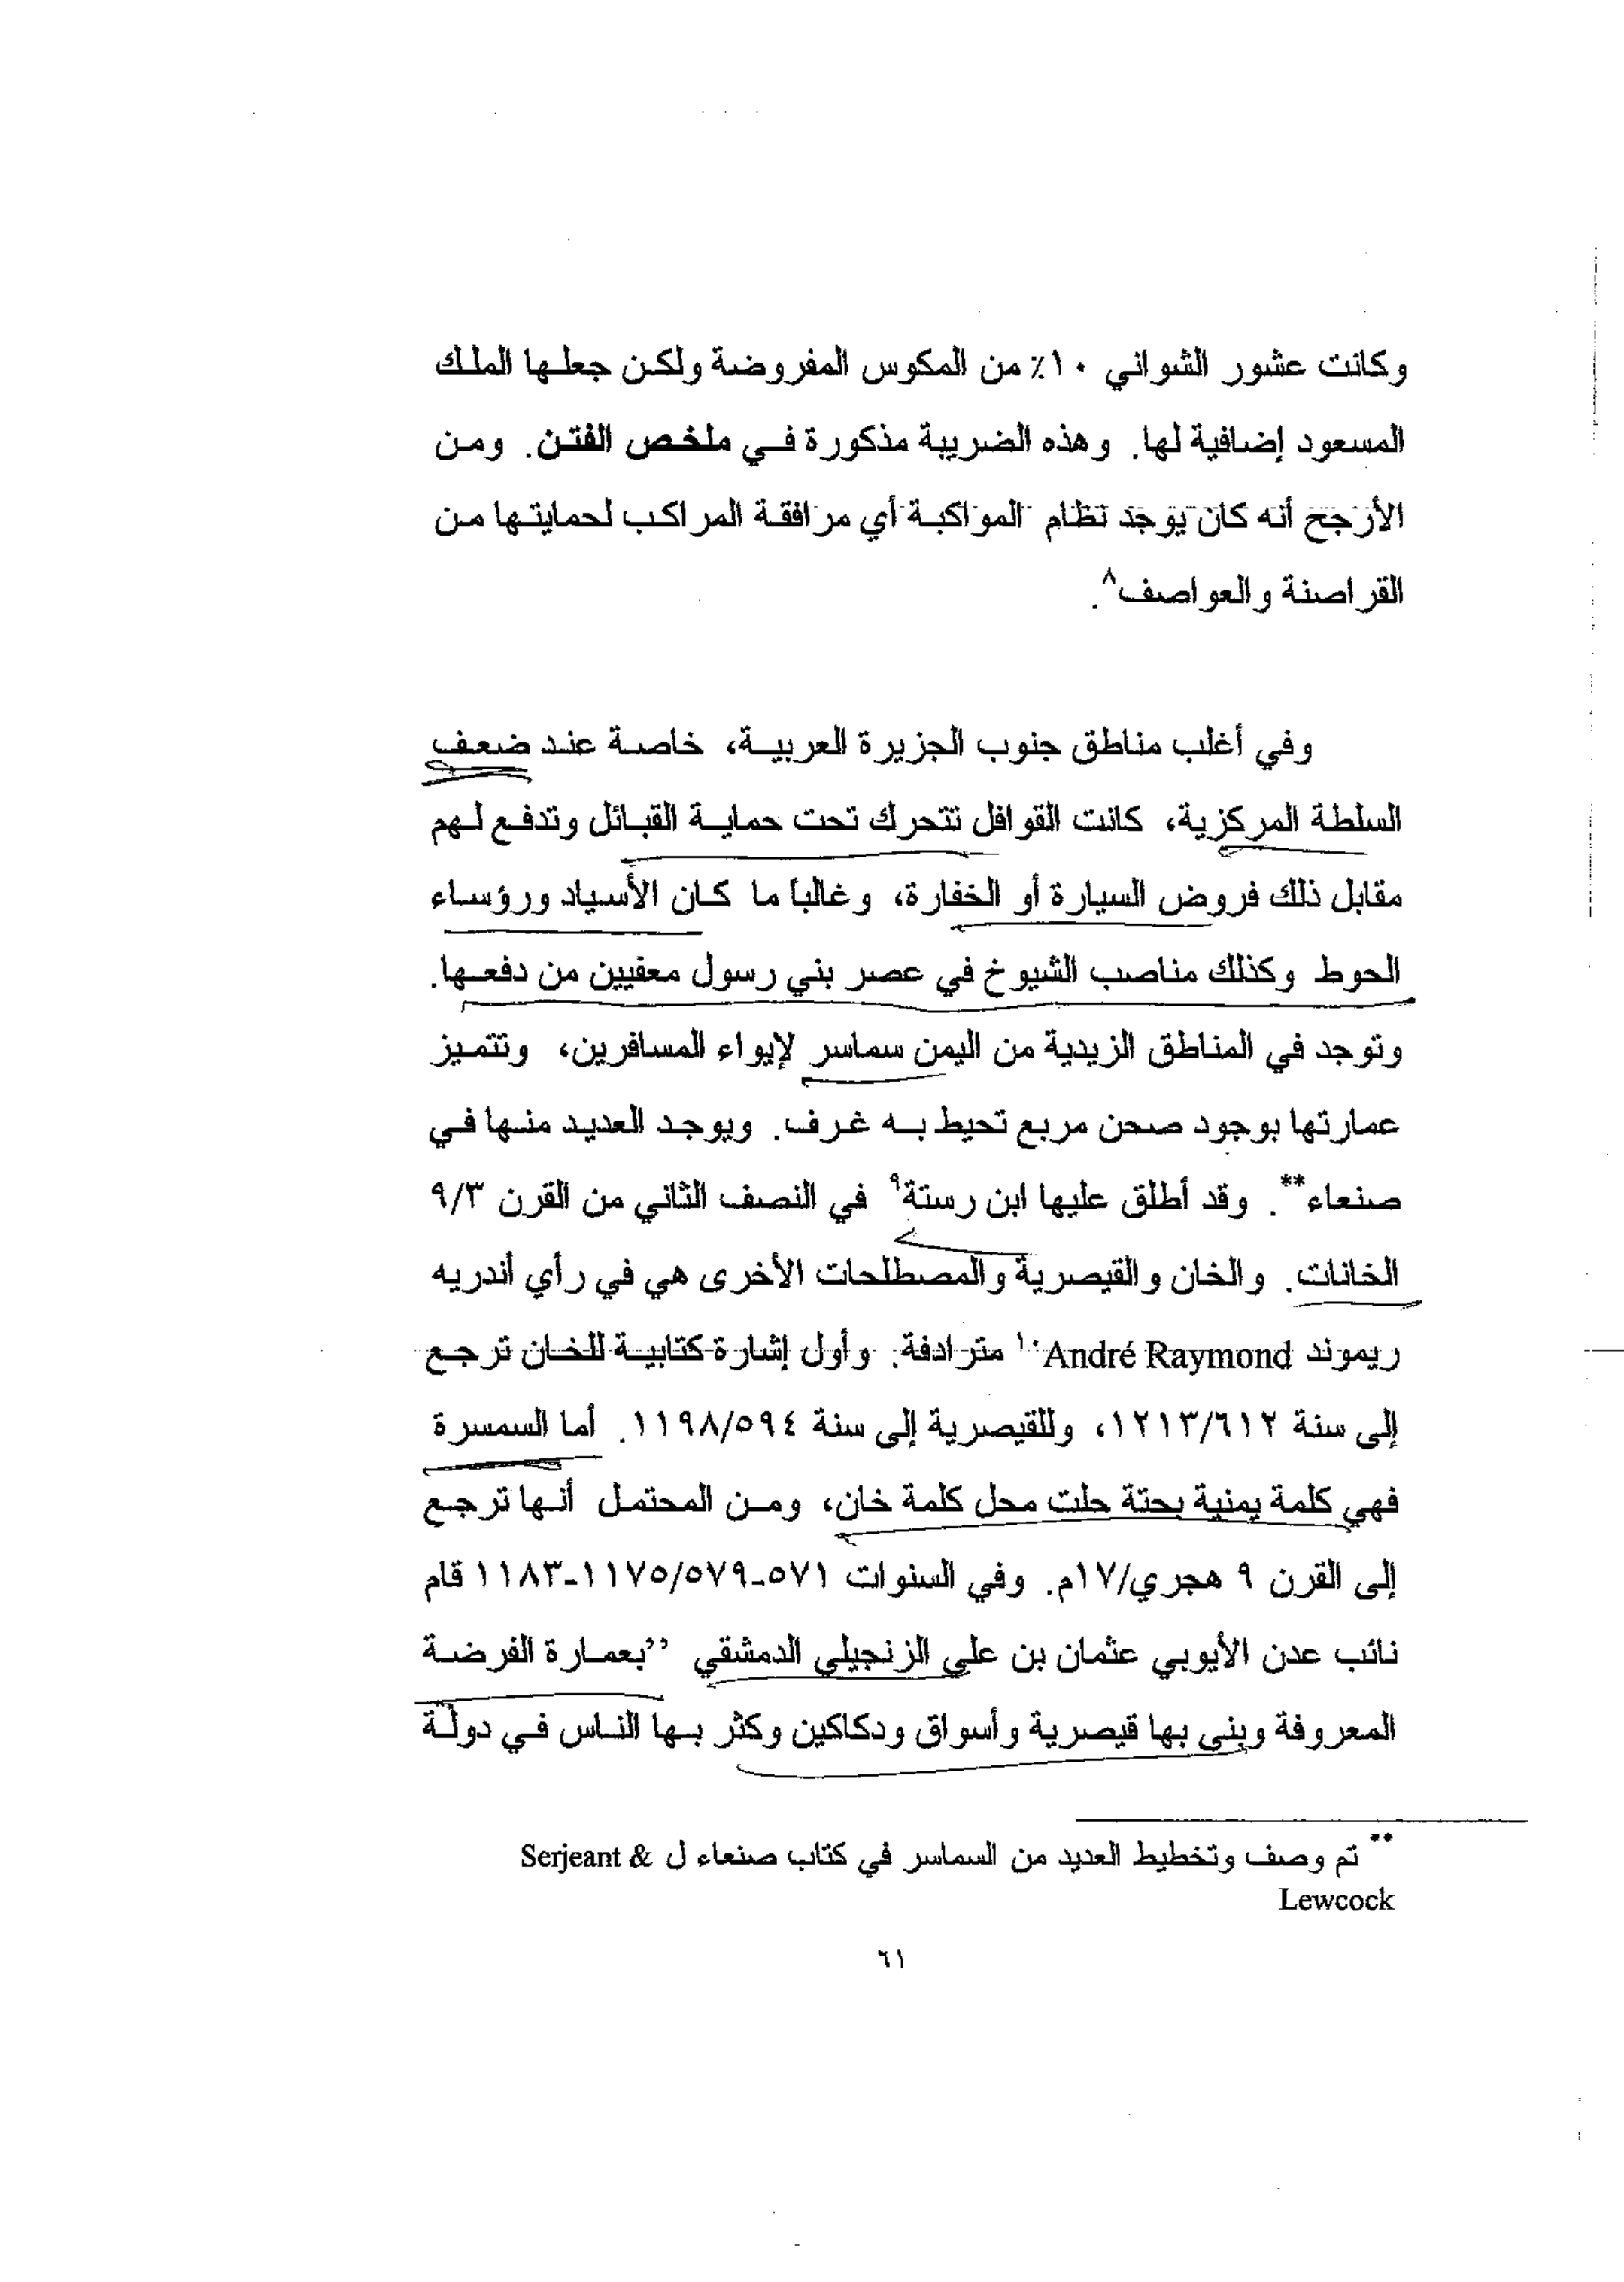 وكانت عشور الشواني ١٠٪ من المكوس المفروضة ولكن جعلها الملك
المسعود إضافية لها. وهذه الضريبة مذكورة في ملخص الفتن. ومن
الأرجح أنه كان يوجد نظام المواكبة أي مرافقة المراكب لحمايتها من
القراصنة والعواصف٨.
وفي أغلب مناطق جنوب الجزيرة العربية، خاصة عند ضعف
السلطة المركزية، كانت القوافل تتحرك تحت حماية القبائل وتدفع لهم
مقابل ذلك فروض السيارة أو الخفارة، وغالباً ما كان الأسياد ورؤساء
الحوط وكذلك مناصب الشيوخ في عصر بني رسول معفيين من دفعها.
وتوجد في المناطق الزيدية من اليمن سماسر لإيواء المسافرين، وتتميز
عمارتها بوجود صحن مربع تحيط به غرف. ويوجد العديد منها في
صنعاء**. وقد أطلق عليها ابن رستة٩ في النصف الثاني من القرن ٩/٣
الخانات. والخان والقيصرية والمصطلحات الأخرى هي في رأي أندريه
ريموند André Raymond١٠ مترادفة. وأول إشارة كتابية للخان ترجع
إلى سنة ١٢١٣/٦١٢، وللقيصرية إلى سنة ١١٩٨/٥٩٤. أما السمسرة
فهي كلمة يمنية بحتة حلت محل كلمة خان، ومن المحتمل أنها ترجع
إلى القرن ٩ هجري/١٧م. وفي السنوات ٥٧١-١١٧٥/٥٧٩-١١٨٣ قام
نائب عدن الأيوبي عثمان بن علي الزنجيلي الدمشقي ”بعمارة الفرضة
المعروفة وبنى بها قيصرية وأسواق ودكاكين وكثر بها الناس في دولة
** تم وصف وتخطيط العديد من السماسر في كتاب صنعاء ل Serjeant &
Lewcock
٦١